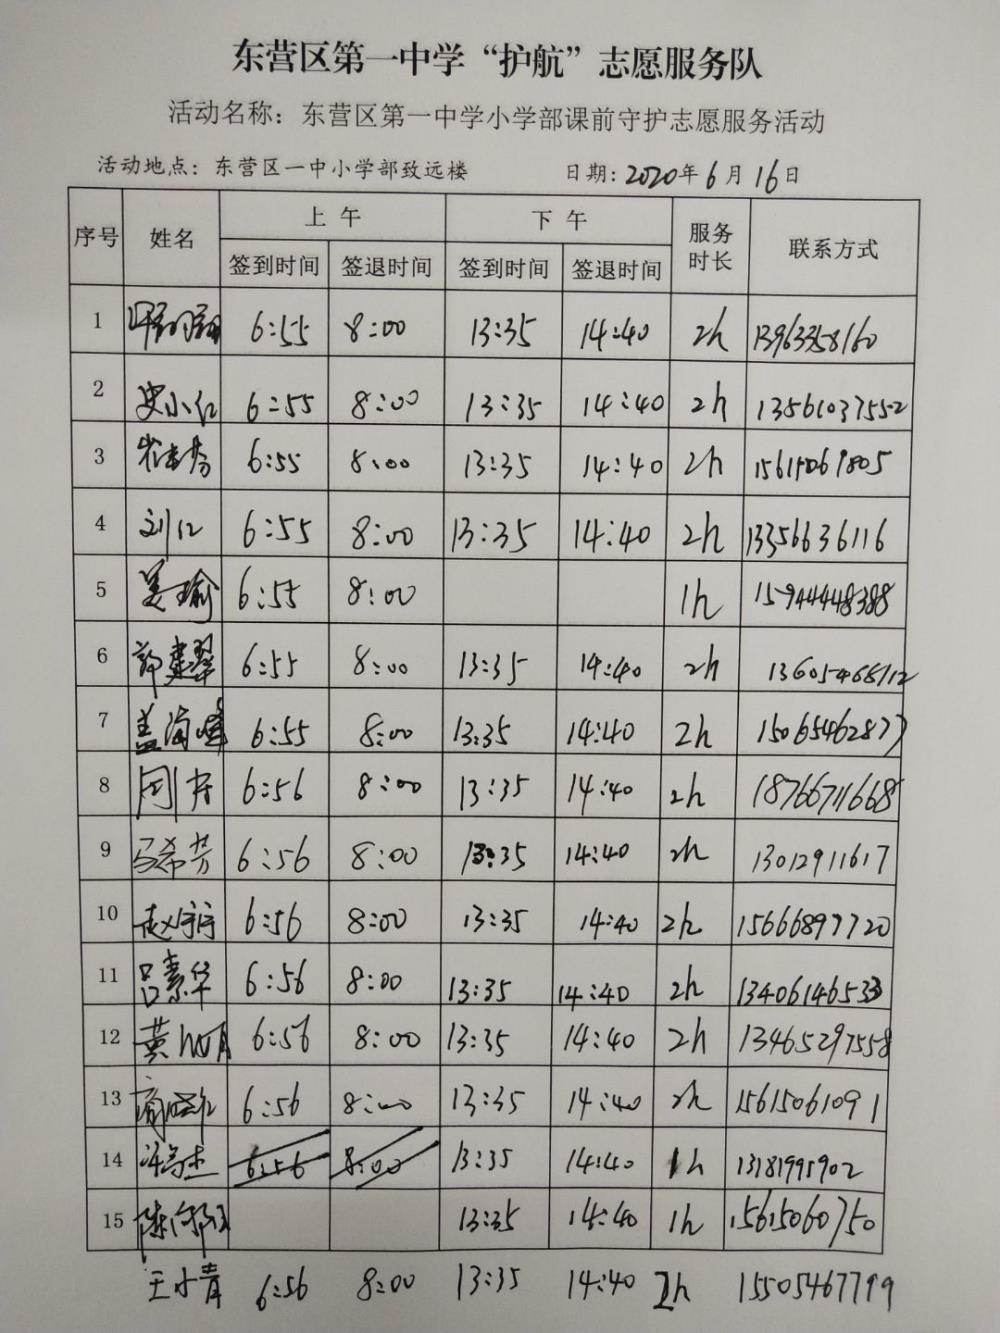 东营区第一中学“护航”志愿服务队
活动名称：东营区第一中学小学部课前守护志愿服务活动
活动地点：东营区一中小学部致远楼 日期：2020年6月16日
序号 姓名 上午 下午 服务时长 联系方式
签到时间 签退时间 签到时间 签退时间
1 6:55 8:00 13:35 14:40 2h 13963358160
2 史小红 6:55 8:00 13:35 14:40 2h 13561037552
3 6:55 8:00 13:35 14:40 2h 15615069805
4 刘红 6:55 8:00 13:35 14:40 2h 13356636116
5 吴瑜 6:55 8:00 1h 15944448388
6 薛建翠 6:55 8:00 13:35 14:40 2h 13605468112
7 盖海峰 6:55 8:00 13:35 14:40 2h 15065462877
8 周 6:56 8:00 13:35 14:40 2h 18766711668
9 马希芳 6:56 8:00 13:35 14:40 2h 13012911617
10 赵宇宇 6:56 8:00 13:35 14:40 2h 15666897720
11 吕素华 6:56 8:00 13:35 14:40 2h 13406146533
12 黄 6:56 8:00 13:35 14:40 2h 13465297558
13 商晓红 6:56 8:00 13:35 14:40 2h 15615061091
14 6:56 8:00 13:35 14:40 1h 13181995902
15 陈 13:35 14:40 1h 15615060750
王小青 6:56 8:00 13:35 14:40 2h 15505467799